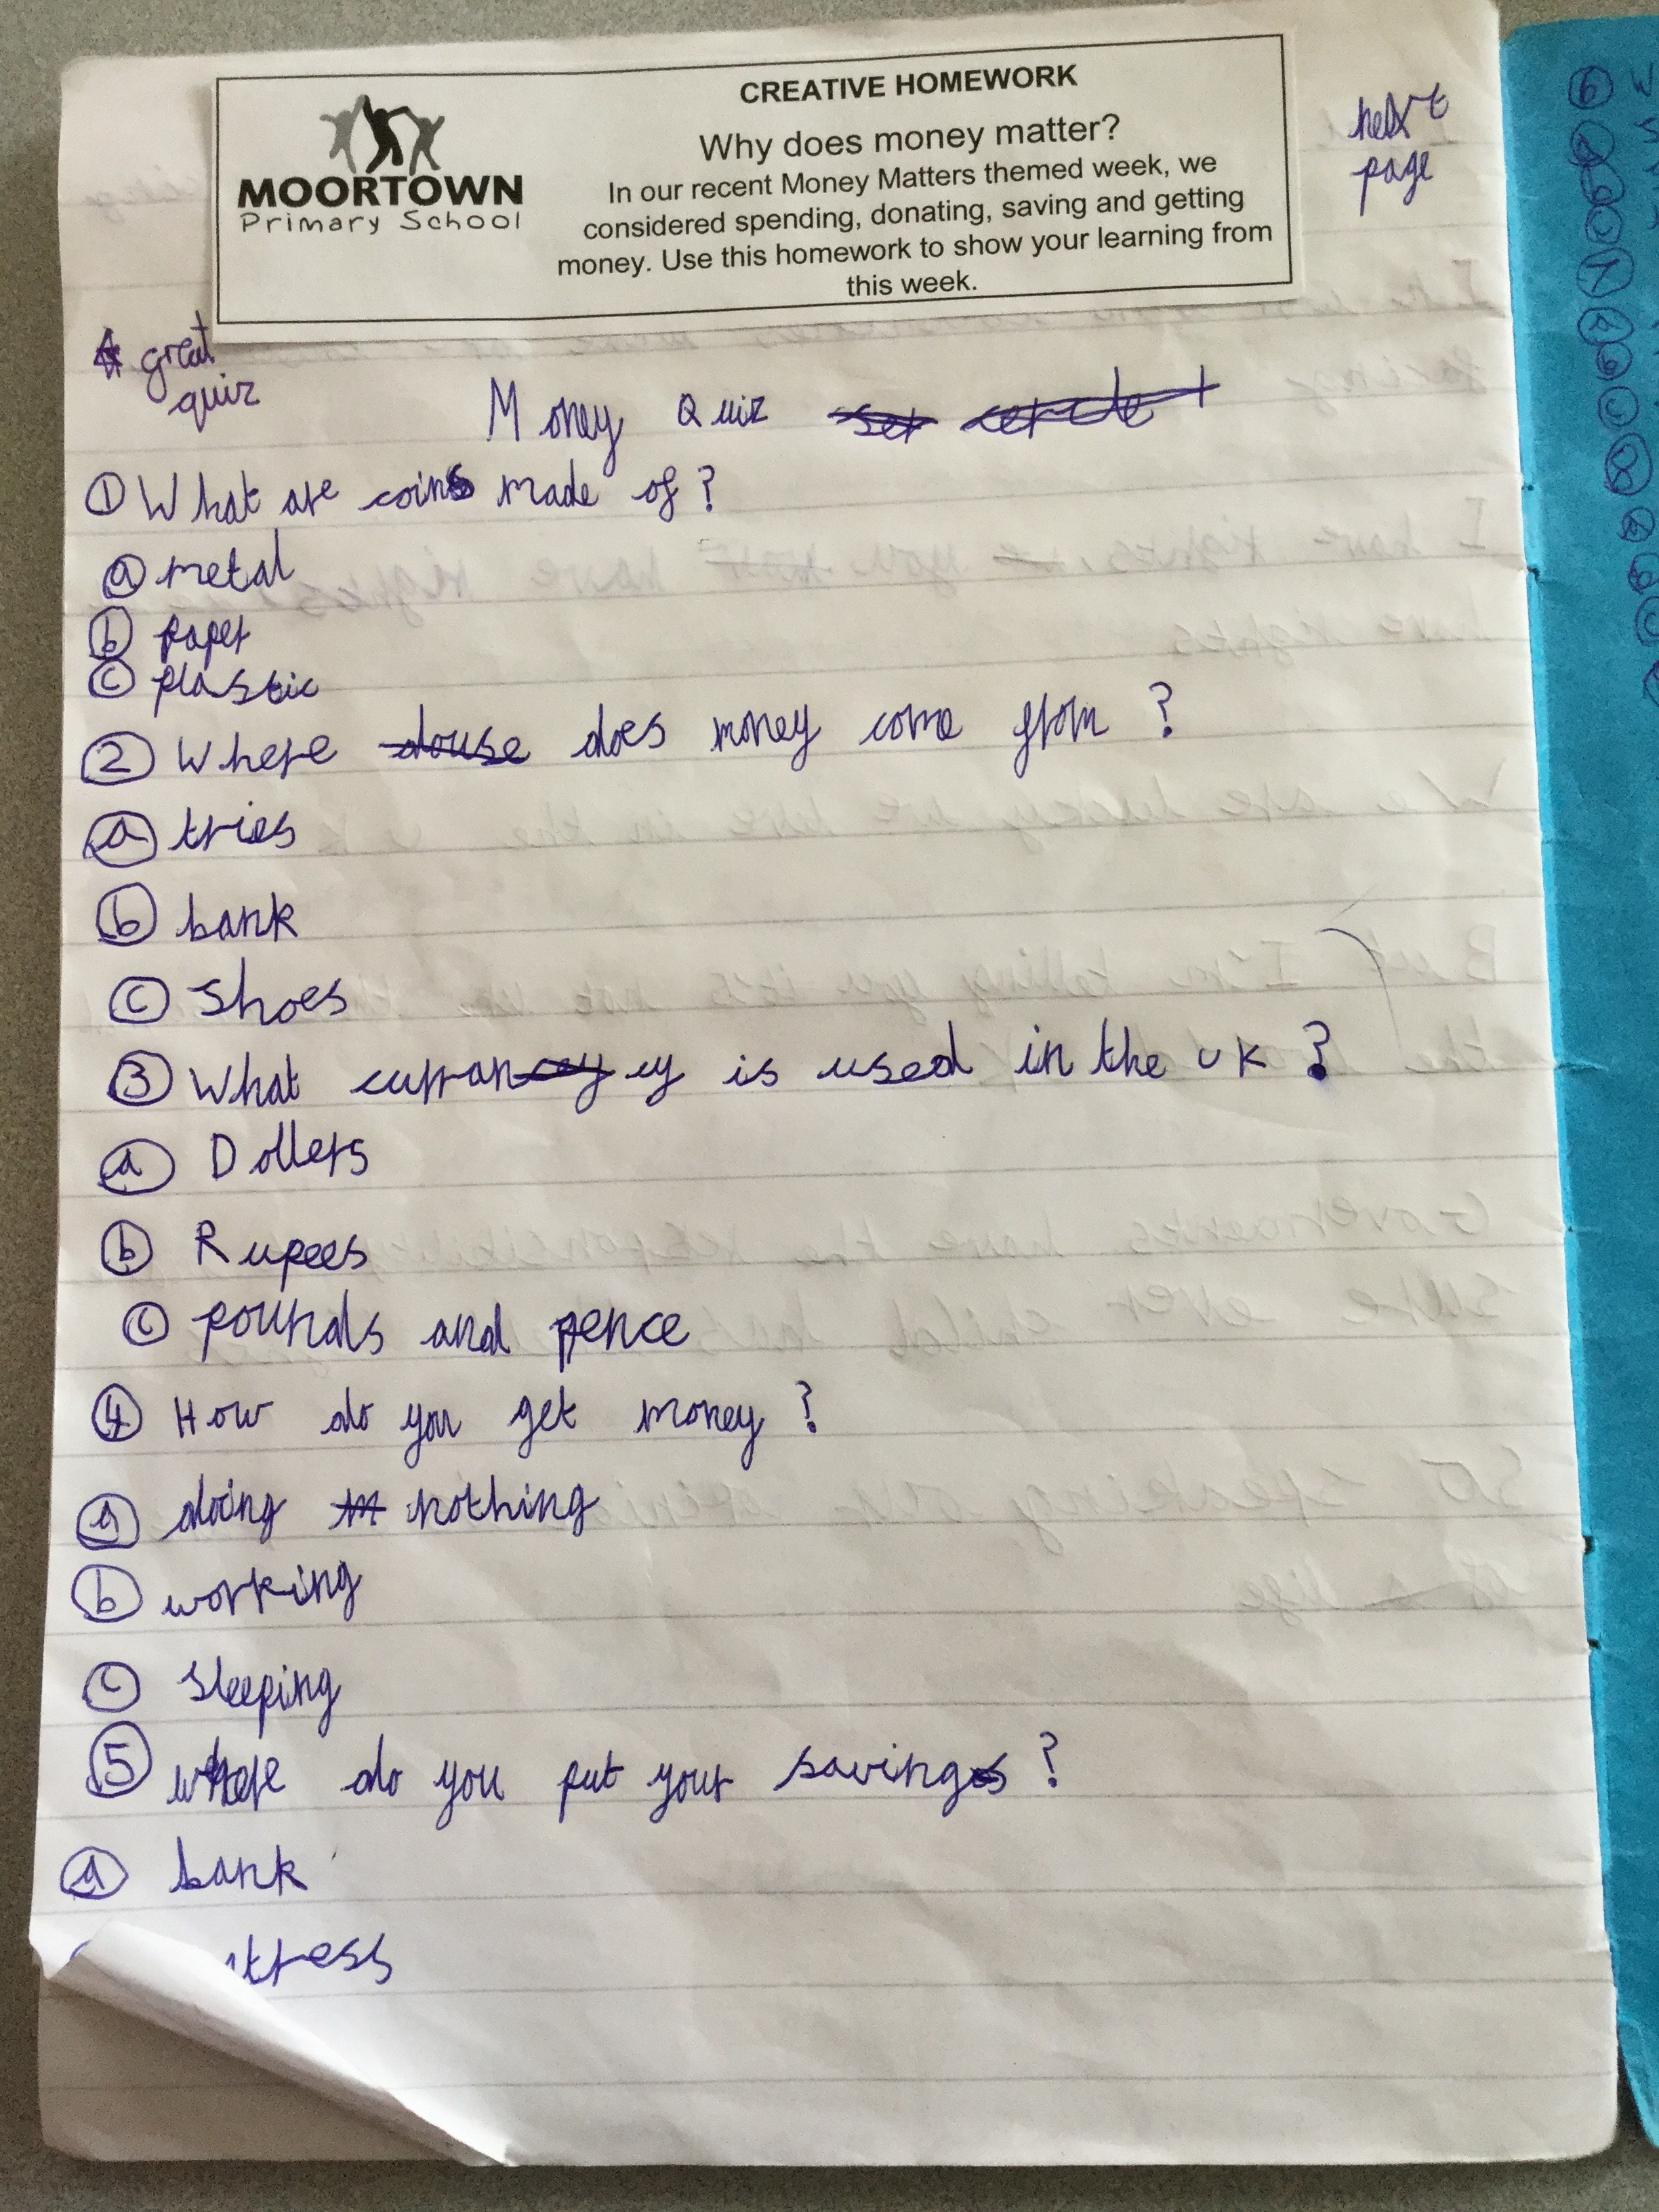 MOORTOWN
Primary School
CREATIVE HOMEWORK
Why does money matter?
In our recent Money Matters themed week, we
considered spending, donating, saving and getting
money. Use this homework to show your learning from
this week.
next
page
great
quiz
Money Quiz
① What are coins made of?
ⓐ metal
ⓑ paper
ⓒ plastic
② Where douse does money come from?
ⓐ tries
ⓑ bank
ⓒ Shoes
③ What currancy is used in the UK?
ⓐ Dollers
ⓑ Rupees
ⓒ pounds and pence
④ How do you get money?
ⓐ doing nothing
ⓑ working
ⓒ sleeping
⑤ where do you put your savings?
ⓐ bank